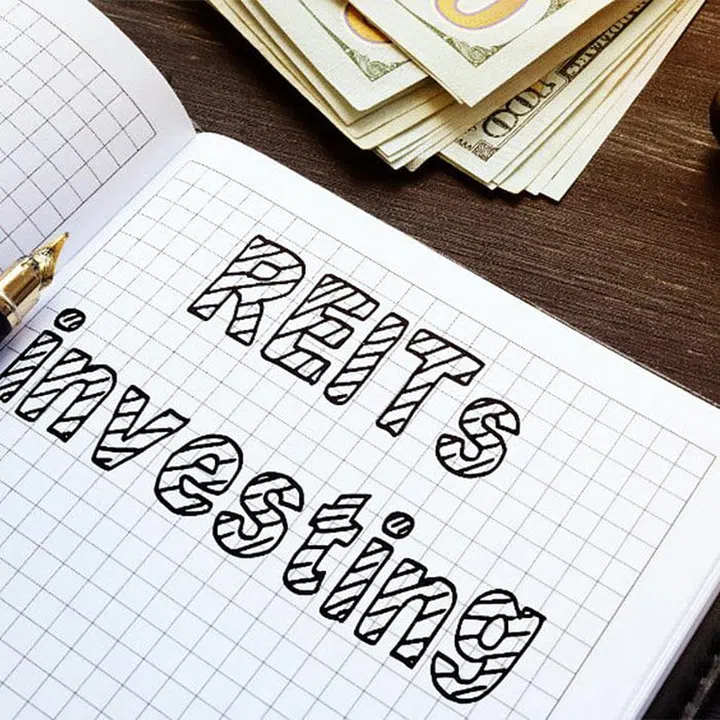 100
REITs
investing